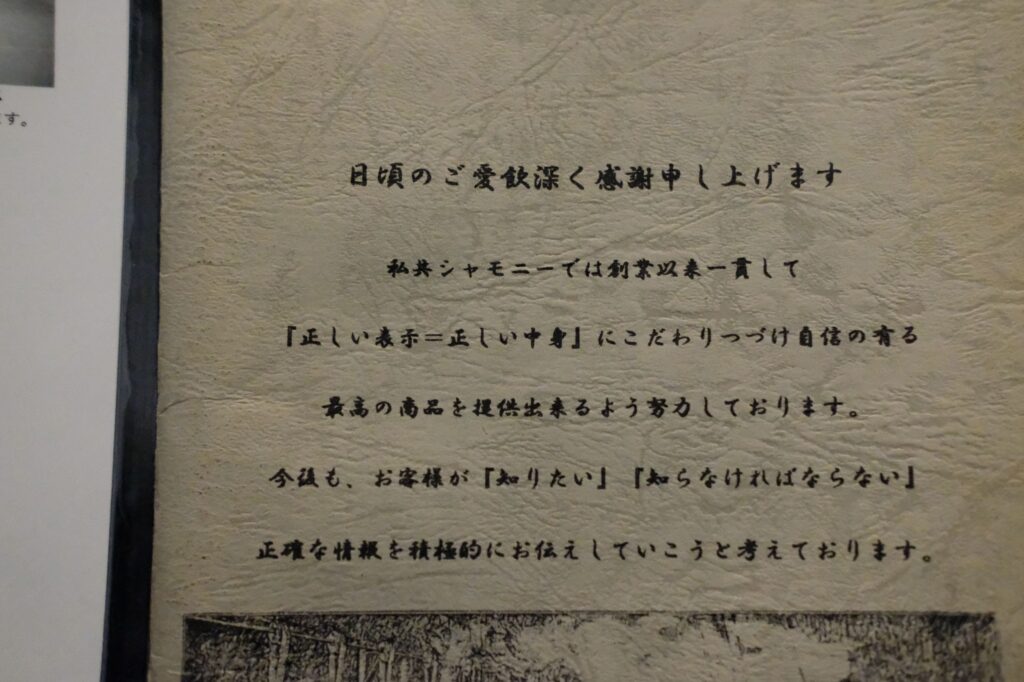 す。
日頃のご愛飲深く感謝申し上げます
私共シャモニーでは創業以来一貫して
『正しい表示＝正しい中身』にこだわりつづけ自信の有る
最高の商品を提供出来るよう努力しております。
今後も、お客様が『知りたい』『知らなければならない』
正確な情報を積極的にお伝えしていこうと考えております。